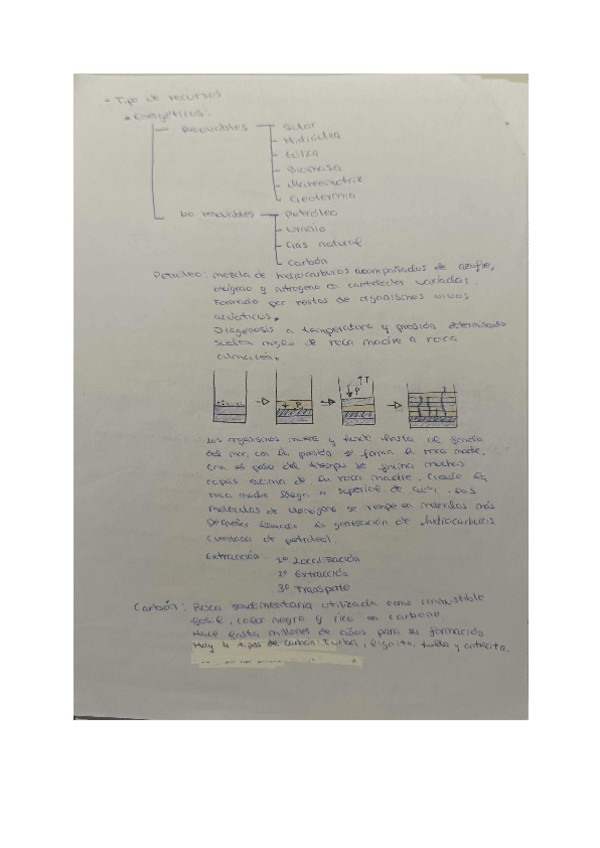 - Tipo de recursos
• Energéticos:
Renovables
Solar
Hidráulica
Eólica
Biomasa
Mareomotriz
Geotermia
No renovables
Petróleo
Uranio
Gas natural
Carbón
Petróleo: mezcla de hidrocarburos acompañados de azufre,
oxígeno y nitrógeno en cantidades variadas.
Formado por restos de organismos vivos
acuáticos.
Diagenosis a temperatura y presión determinada
suelen de roca madre a roca
almacén.
P
↑T
P
Los organismos muere y hasta el fondo
del mar, con la presión se forma la roca madre.
Con el paso del tiempo se forma muchas
capas encima de la roca madre. Cuando la
roca madre llega a superior de
moléculas de se rompe en moléculas más
pequeñas la generación de hidrocarburos
(ventana de petróleo).
Extracción: 1º Localización
2º Extracción
3º Transporte
Carbón: Roca sedimentaria utilizada como combustible
fósil, color negro y rico en carbono
Hace falta millones de años para su formación
Hay 4 tipos de carbón: turba, lignito, hulla y antracita.